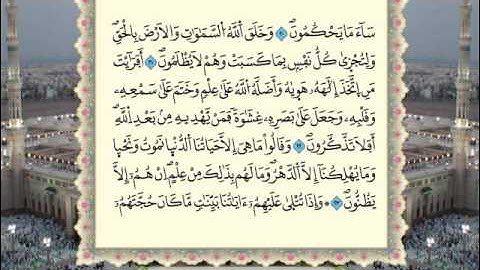 سَآءَ مَا يَحْكُمُونَۖ ۝٢٠ وَخَلَقَ ٱللَّهُ ٱلسَّمَٰوَٰتِ وَٱلْأَرْضَ بِٱلْحَقِّۖ
وَلِتُجْزَىٰ كُلُّ نَفْسٍۭ بِمَا كَسَبَتْ وَهُمْ لَا يُظْلَمُونَۖ ۝٢١ أَفَرَٰيْتَ
مَنِ ٱتَّخَذَ إِلَٰهَهُۥ هَوَىٰهُ وَأَضَلَّهُ ٱللَّهُ عَلَىٰ عِلْمٍ وَخَتَمَ عَلَىٰ سَمْعِهِۦ
وَقَلْبِهِۦ وَجَعَلَ عَلَىٰ بَصَرِهِۦ غِشَٰوَةً فَمَنْ يَّهْدِيهِ مِنۢ بَعْدِ ٱللَّهِۖ
أَفَلَا تَذَّكَّرُونَۖ ۝٢٢ وَقَالُوا۟ مَا هِىَ إِلَّا حَيَاتُنَا ٱلدُّنْيَا نَمُوتُ وَنَحْيَا
وَمَا يُهْلِكُنَآ إِلَّا ٱلدَّهْرُۖ وَمَا لَهُم بِذَٰلِكَ مِنْ عِلْمٍۖ إِنْ هُمُۥٓ إِلَّا
يَظُنُّونَۖ ۝٢٣ وَإِذَا تُتْلَىٰ عَلَيْهِمُۥٓ ءَايَٰتُنَا بَيِّنَٰتٍ مَّا كَانَ حُجَّتَهُمُۥٓ